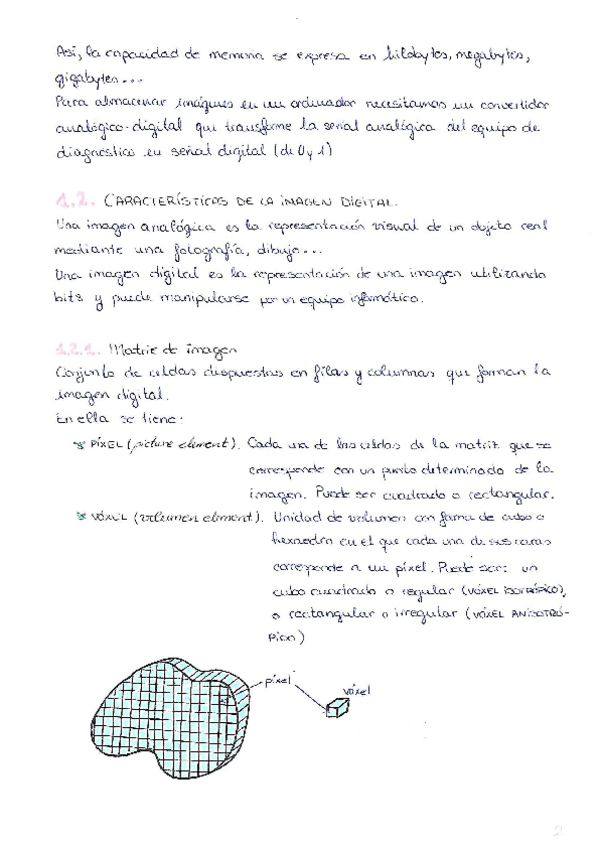 Así, la capacidad de memoria se expresa en kilobytes, megabytes,
gigabytes...
Para almacenar imágenes en un ordinador necesitamos un convertidor
analógico-digital que transforme la señal analógica del equipo de
diagnóstico en señal digital (de 0 y 1)
1.2. CARACTERÍSTICAS DE LA IMAGEN DIGITAL.
Una imagen analógica es la representación visual de un objeto real
mediante una fotografía, dibujo...
Una imagen digital es la representación de una imagen utilizando
bits y puede manipularse por un equipo informático.
1.2.1. Matriz de imagen
Conjunto de celdas dispuestas en filas y columnas que forman la
imagen digital.
En ella se tiene:
PÍXEL (picture element). Cada una de las celdas de la matriz que se
corresponde con un punto determinado de la
imagen. Puede ser cuadrado o rectangular.
VÓXEL (volumen element). Unidad de volumen con forma de cubo o
hexaedro en el que cada una de sus caras
corresponde a un píxel. Puede ser: un
cubo cuadrado o regular (VÓXEL ISOTRÓPICO),
o rectangular o irregular (VÓXEL ANISOTRÓ-
PICO)
píxel
vóxel
2